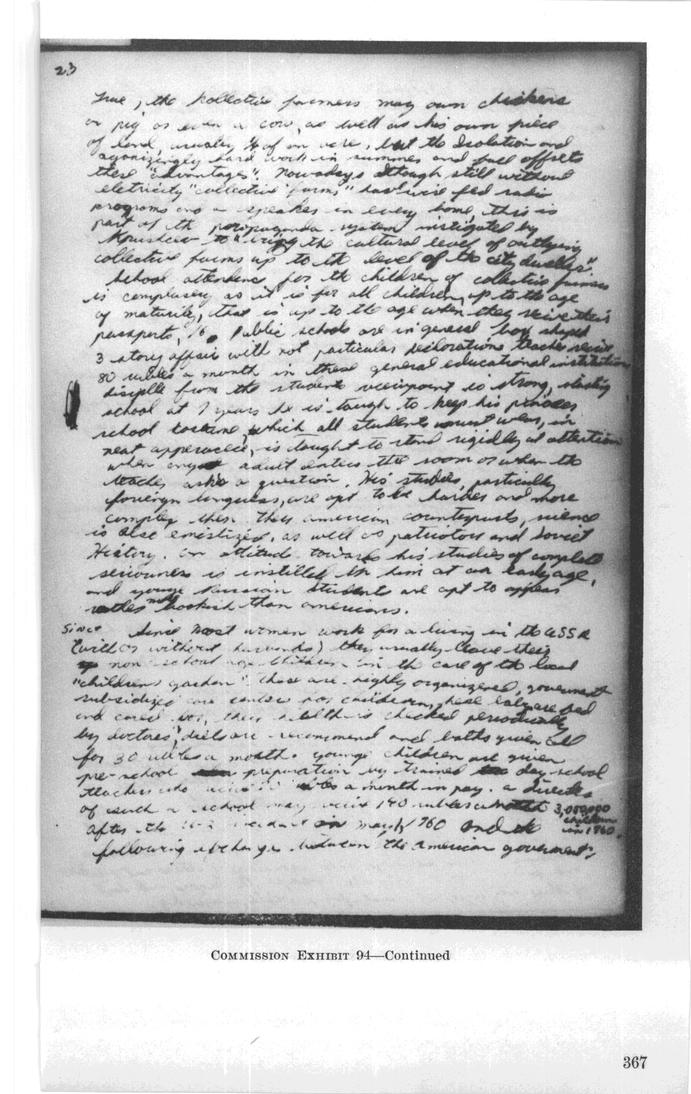 23
true, the kollective farmers may own chickens
or pig or even a cow, as well as his own piece
of land, usually ¼ of an acre, but the isolation and
agonizingly hard work in summer and fall offsets
these "advantages". Nowadays although still without
eletricity "collective farms" have wire fed radio
programs and a speaker in every home, this is
part of th propaganda system instigated by
to "bring the cultural level of outlying
collective farms up to th level of the city dweller".
School attendence for the children of collective farmers
is complusery as it is for all children, up to the age
of maturity, that is up to the age when they recive their
passports, 16. Public schools are in general box shaped
3 story affair with not particular teacher recive
80 rubles a month in these general educational institutions
from the students viewpoint is strong, starting
school at 7 years he is taugh to keep his
school costume, which all students must wear, in
neat apperacece, is taught to stand rigidly at attention
when any adult enters the room or when the
teacher asks a question. His studies, particularly
foreign languess, are apt to be harder and more
complex then their american counterparts, science
is also, as well as patriotism and Soviet
History. an attitude towards his studies of complete
seriouness is instilled in him at an early age,
and young Russian students are apt to appear
rather bookish than americans.
Since Since most women work for a living in th USSR
(with or without husbands) they usually leave their
non school age children in the care of the local
"children's garden" these are highly organizered, goverment
subsidized care centers for childern, here baby are fed
and cared for, their health is checked periodically
by doctors, diets are recommend and baths given all
for 30 rubles a month. young children are given
pre-school preparation by trained day school
teachers who rubles a month in pay. a director
of such a school may recive 140 rubles a month 3,000,000
children
in 1960.
After the in may 1960 and the
following exchange between the American goverment,
COMMISSION EXHIBIT 94—Continued
367